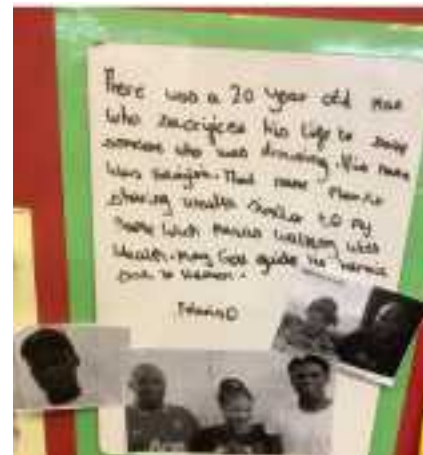 There was a 20 year old man
who sacrifices his life to save
someone who was drowning. His name
was
That name means
sharing wealth similar to my
name which means walking with
wealth. may God guide his
soul to heaven.